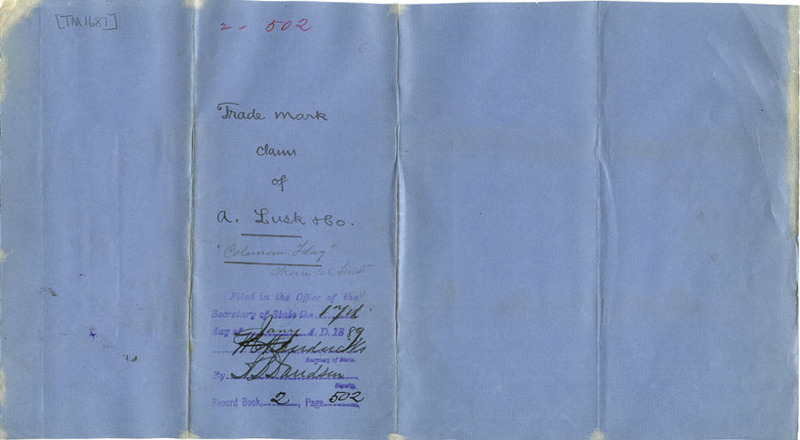 [TM1687]
2 - 502
Trade Mark
claim
of
A. Lusk & Co.
"Coleman Flag"
Filed in the Office of the
Secretary of State the 17th
day of Jany A.D. 1889
W C Hendricks
Secretary of State.
By Davidson
Deputy.
Record Book, 2, Page 502